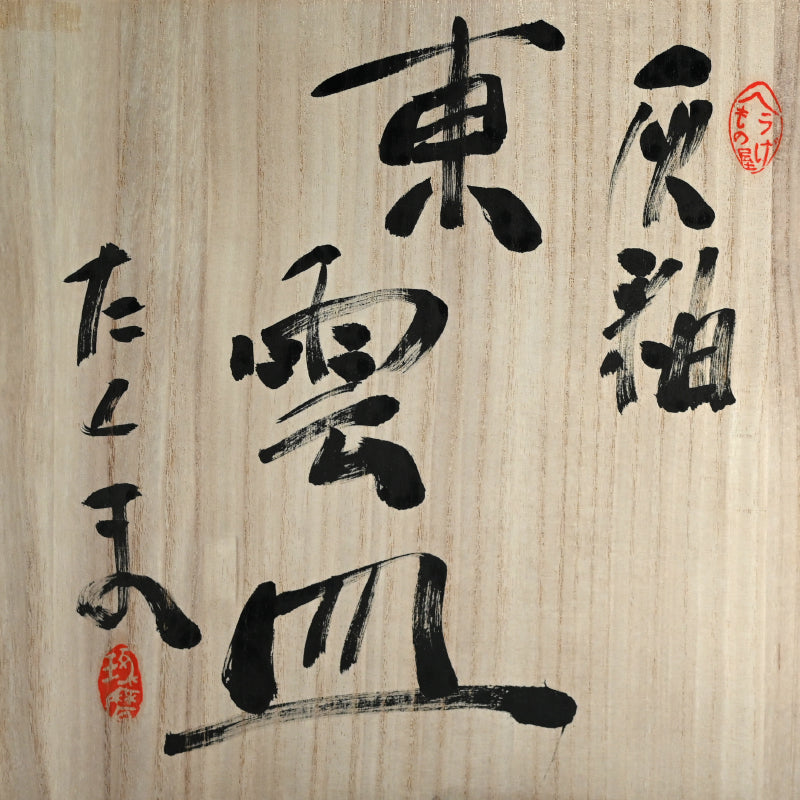 へうけ
もの屋
灰釉
東雲皿
たくま
琢磨